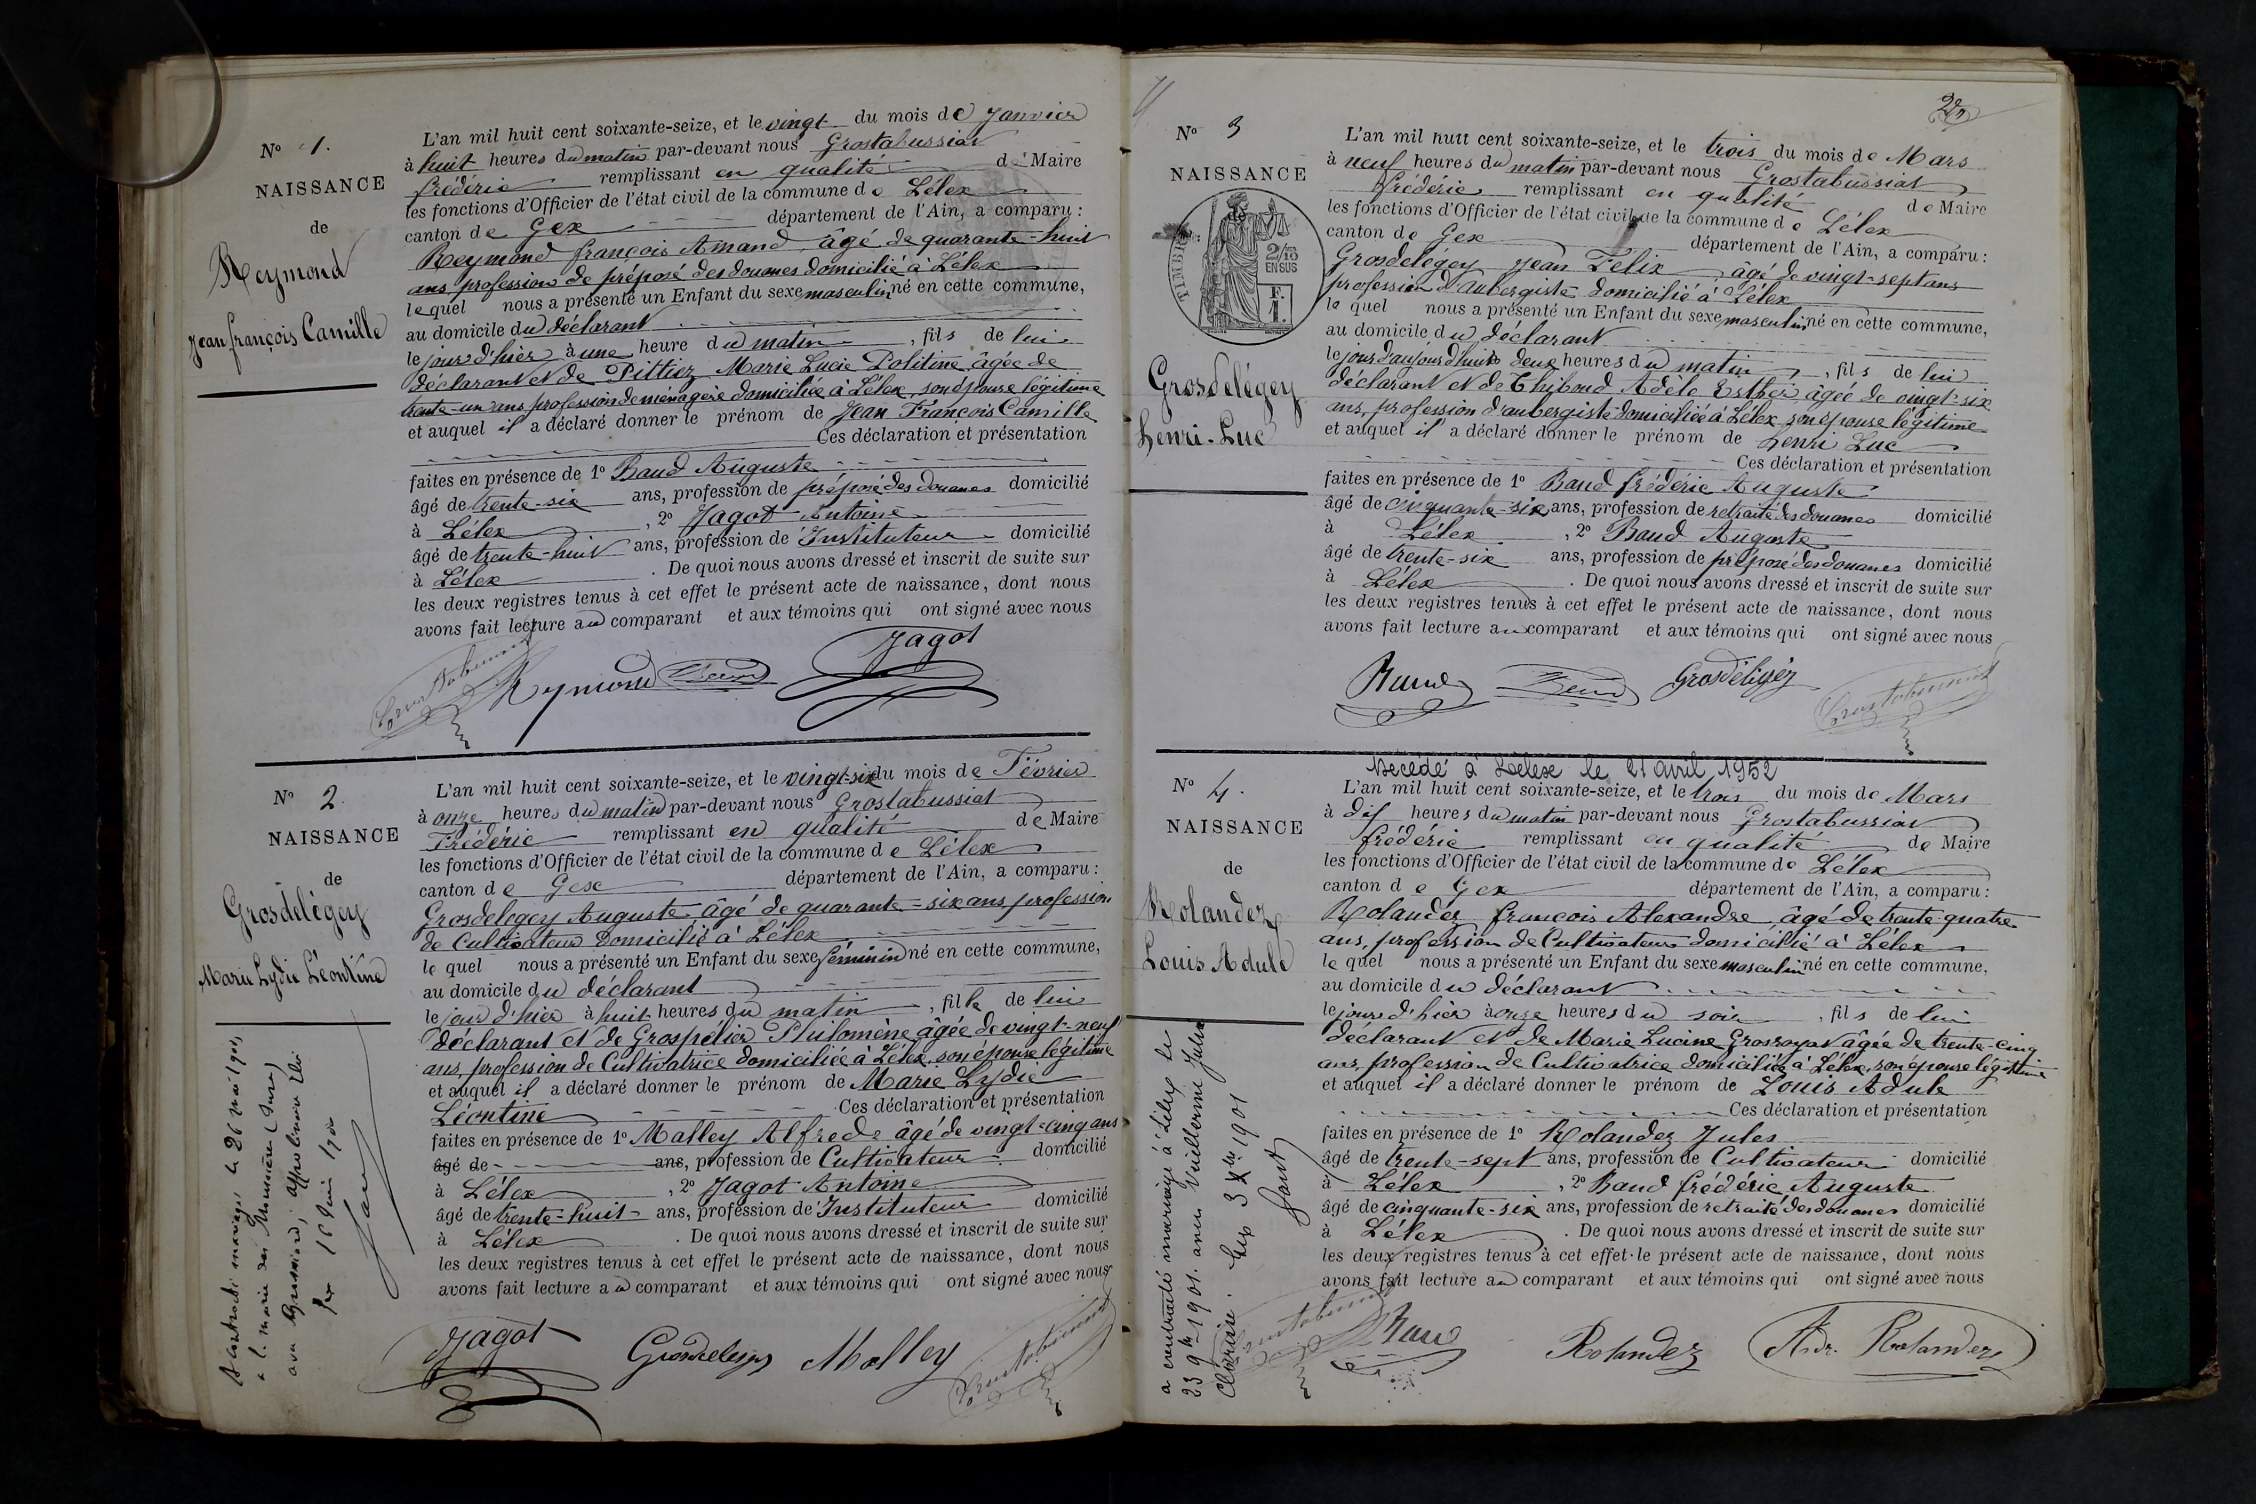 N° 1.
NAISSANCE
de
Reymond
Jean françois Camille
L'an mil huit cent soixante-seize, et le vingt du mois de Janvier
à huit heures du matin par-devant nous Grostabussiat
frédéric remplissant en qualité de Maire
les fonctions d'Officier de l'état civil de la commune de Lélex
canton de Gex département de l'Ain, a comparu :
Reymond françois Amand âgé de quarante-huit
ans profession de préposé des douanes domicilié à Lélex
lequel nous a présenté un Enfant du sexe masculin né en cette commune,
au domicile du déclarant
le jour d'hier à une heure du matin, fils de lui
déclarant et de Pittiez Marie Lucie Politine âgée de
trente-un ans profession de ménagère domiciliée à Lélex, son épouse légitime
et auquel il a déclaré donner le prénom de Jean François Camille
Ces déclaration et présentation
faites en présence de 1° Baud Auguste
âgé de trente-six ans, profession de préposé des douanes domicilié
à Lélex, 2° Jagot Antoine
âgé de trente-huit ans, profession de Instituteur domicilié
à Lélex. De quoi nous avons dressé et inscrit de suite sur
les deux registres tenus à cet effet le présent acte de naissance, dont nous
avons fait lecture au comparant et aux témoins qui ont signé avec nous
Grostabussiat Reymond Baud Jagot
N° 2.
NAISSANCE
de
Grosdelégey
Marie Lydie Léontine
L'an mil huit cent soixante-seize, et le vingt-six du mois de Février
à onze heures du matin par-devant nous Grostabussiat
Frédéric remplissant en qualité de Maire
les fonctions d'Officier de l'état civil de la commune de Lélex
canton de Gex département de l'Ain, a comparu :
Grosdelegey Auguste, âgé de quarante-six ans profession
de Cultivateur domicilié à Lélex
lequel nous a présenté un Enfant du sexe féminin né en cette commune,
au domicile du déclarant
le jour d'hier à huit heures du matin, fille de lui
déclarant et de Grospelier Philomène âgée de vingt-neuf
ans, profession de Cultivatrice domiciliée à Lélex, son épouse légitime
et auquel il a déclaré donner le prénom de Marie Lydie
Léontine Ces déclaration et présentation
faites en présence de 1° Malley Alfred âgé de vingt-cinq ans
âgé de ans, profession de Cultivateur domicilié
à Lélex, 2° Jagot Antoine
âgé de trente-huit ans, profession de Instituteur domicilié
à Lélex. De quoi nous avons dressé et inscrit de suite sur
les deux registres tenus à cet effet le présent acte de naissance, dont nous
avons fait lecture au comparant et aux témoins qui ont signé avec nous
Jagot Grosdelegey Malley Grostabussiat
A contracté mariage le 26 mai
à la mairie des
avec
Gex 16 Juin
N° 3
NAISSANCE
TIMBRE
2/10 EN SUS
F. 1.
Grosdelégey
Henri-Luc
L'an mil huit cent soixante-seize, et le trois du mois de Mars
à neuf heures du matin par-devant nous Grostabussiat
frédéric remplissant en qualité de Maire
les fonctions d'Officier de l'état civil de la commune de Lélex
canton de Gex département de l'Ain, a comparu :
Grosdelégey Jean Félix âgé de vingt-sept ans
profession d'aubergiste domicilié à Lélex
lequel nous a présenté un Enfant du sexe masculin né en cette commune,
au domicile du déclarant
le jour d'aujourd'hui à deux heures du matin, fils de lui
déclarant et de Thiboud Adèle Esther âgée de vingt-six
ans, profession d'aubergiste domiciliée à Lélex son épouse légitime
et auquel il a déclaré donner le prénom de Henri Luc
Ces déclaration et présentation
faites en présence de 1° Baud frédéric Auguste
âgé de cinquante-six ans, profession de retraité des douanes domicilié
à Lélex, 2° Baud Auguste
âgé de trente-six ans, profession de préposé des douanes domicilié
à Lélex. De quoi nous avons dressé et inscrit de suite sur
les deux registres tenus à cet effet le présent acte de naissance, dont nous
avons fait lecture au comparant et aux témoins qui ont signé avec nous
Baud Baud Grosdélégéy Grostabussiat
Décédé à Lélex le 21 avril 1952
N° 4.
NAISSANCE
de
Rolandez
Louis Adule
L'an mil huit cent soixante-seize, et le trois du mois de Mars
à dix heures du matin par-devant nous Grostabussiat
frédéric remplissant en qualité de Maire
les fonctions d'Officier de l'état civil de la commune de Lélex
canton de Gex département de l'Ain, a comparu :
Rolandez françois Alexandre âgé de trente-quatre
ans, profession de Cultivateur domicilié à Lélex
lequel nous a présenté un Enfant du sexe masculin né en cette commune,
au domicile du déclarant
le jour d'hier à onze heures du soir, fils de lui
déclarant et de Marie Lucine Grosroyat âgée de trente-cinq
ans, profession de Cultivatrice domiciliée à Lélex, son épouse légitime
et auquel il a déclaré donner le prénom de Louis Adule
Ces déclaration et présentation
faites en présence de 1° Rolandez Jules
âgé de trente-sept ans, profession de Cultivateur domicilié
à Lélex, 2° Baud frédéric Auguste
âgé de cinquante-six ans, profession de retraité des douanes domicilié
à Lélex. De quoi nous avons dressé et inscrit de suite sur
les deux registres tenus à cet effet le présent acte de naissance, dont nous
avons fait lecture au comparant et aux témoins qui ont signé avec nous
Grostabussiat Baud Rolandez Rolandez
a contracté mariage à Lélex le
23 9bre 1901. avec Vuillermoz Julie
Gex 3 Xbre 1901